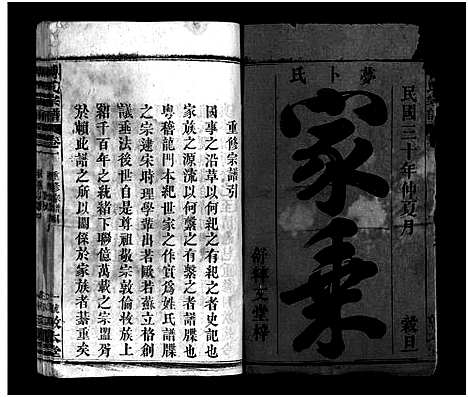 民國三十年仲夏月
穀旦
卜氏
家乘
文堂梓
重修宗譜引
國事之沿革以何紀之有紀之者史記也
家族之源流以何繫之有繫之者譜牒也
粵稽龍門本紀世家之作實爲姓氏譜牒
之宗逮宋時理學輩出若歐若蘇立格創
議垂法後世自是尊祖敬宗敦倫收族上
紹千百年之統緒下聯億萬載之宗盟胥
於賴此譜之所以關係於家族者綦重矣
宗譜
卷
重修宗譜引